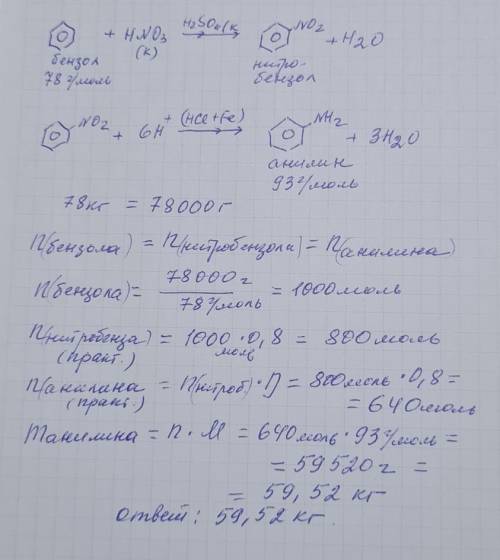 + HNO3 H2SO4(к NO2 + H2O
бензол (к) нитро-
78 г/моль бензол
NO2 + 6H+ (HCl+Fe) NH2 + 3H2O
анилин
93 г/моль
78 кг = 78000 г
n(бензола) = n(нитробензола) = n(анилина)
n(бензола) = 78000 г / 78 г/моль = 1000 моль
n(нитробенза) = 1000 моль · 0,8 = 800 моль
(практ.)
n(анилина = n(нитроб) · η = 800 моль · 0,8 =
(практ.) = 640 моль
mанилина = n · M = 640 моль · 93 г/моль =
= 59520 г =
= 59,52 кг
ответ: 59,52 кг.